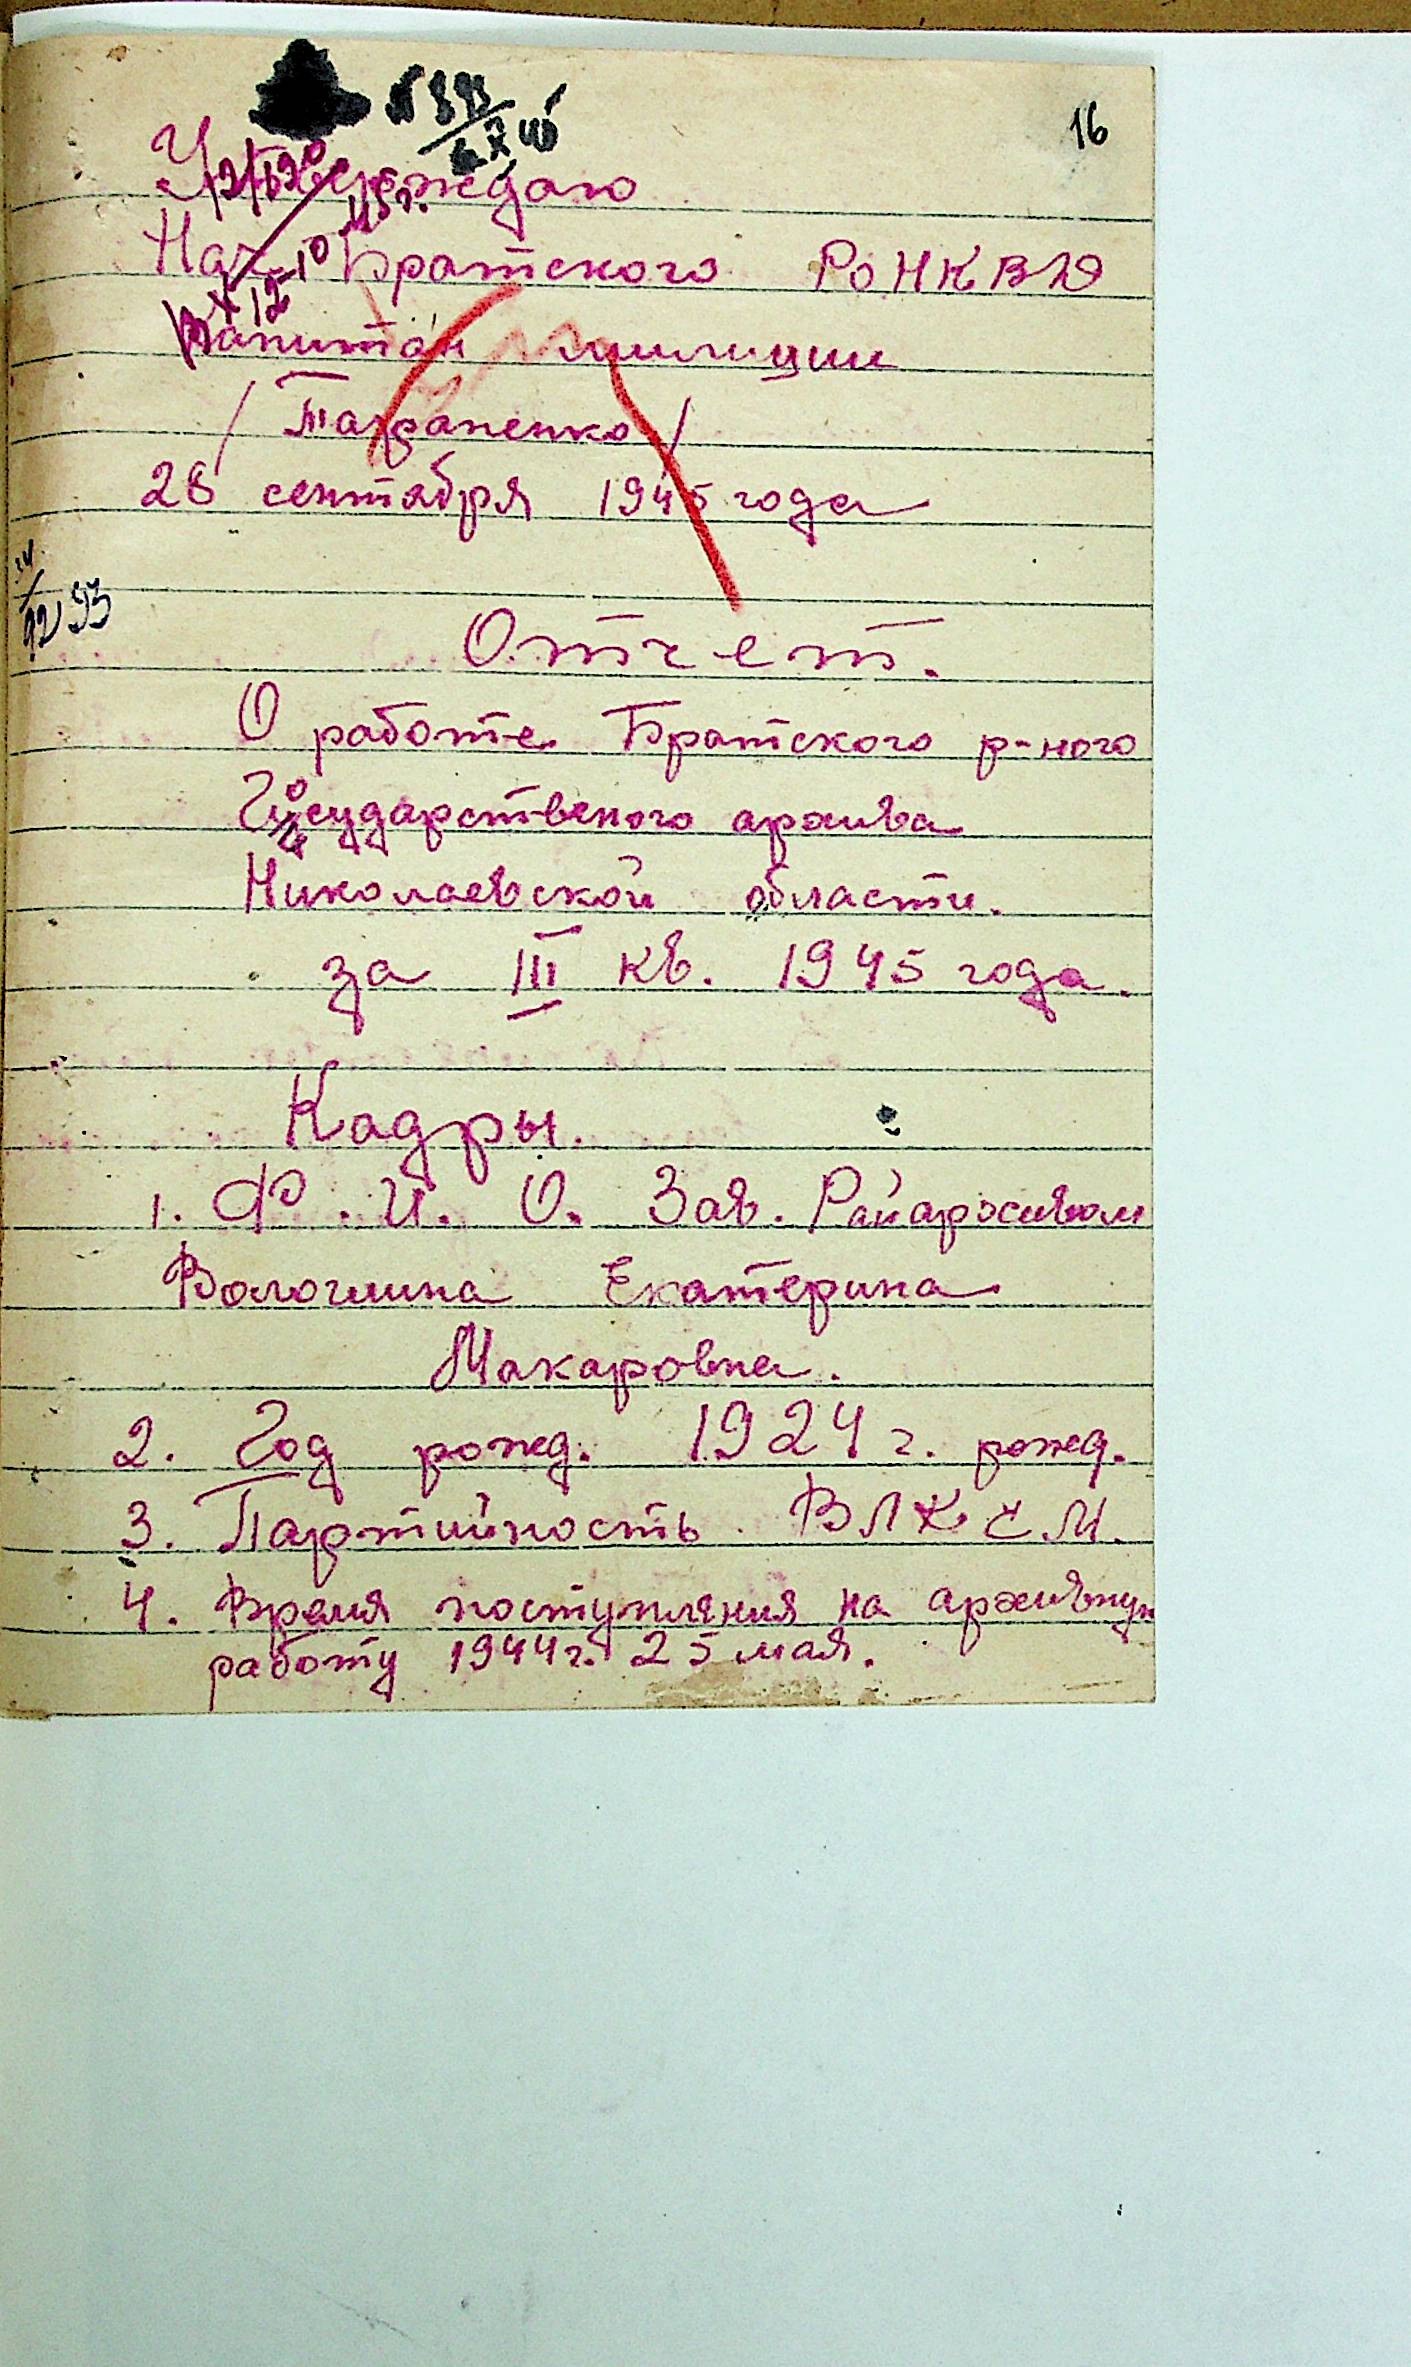 16
Утверждаю
Нач. Братского РО НКВД
Капитан милиции
/Тараненко/
28 сентября 1945 года
Отчет.
О работе Братского р-ного
Государственого архива
Николаевской области.
за III кв. 1945 года.
Кадры.
1. Ф. И. О. Зав. Райархивом
Екатерина
Макаровна.
2. Год рожд. 1924 г. рожд.
3. Партийность ВЛКСМ.
4. Время поступления на архивную
работу 1944 г. 25 мая.